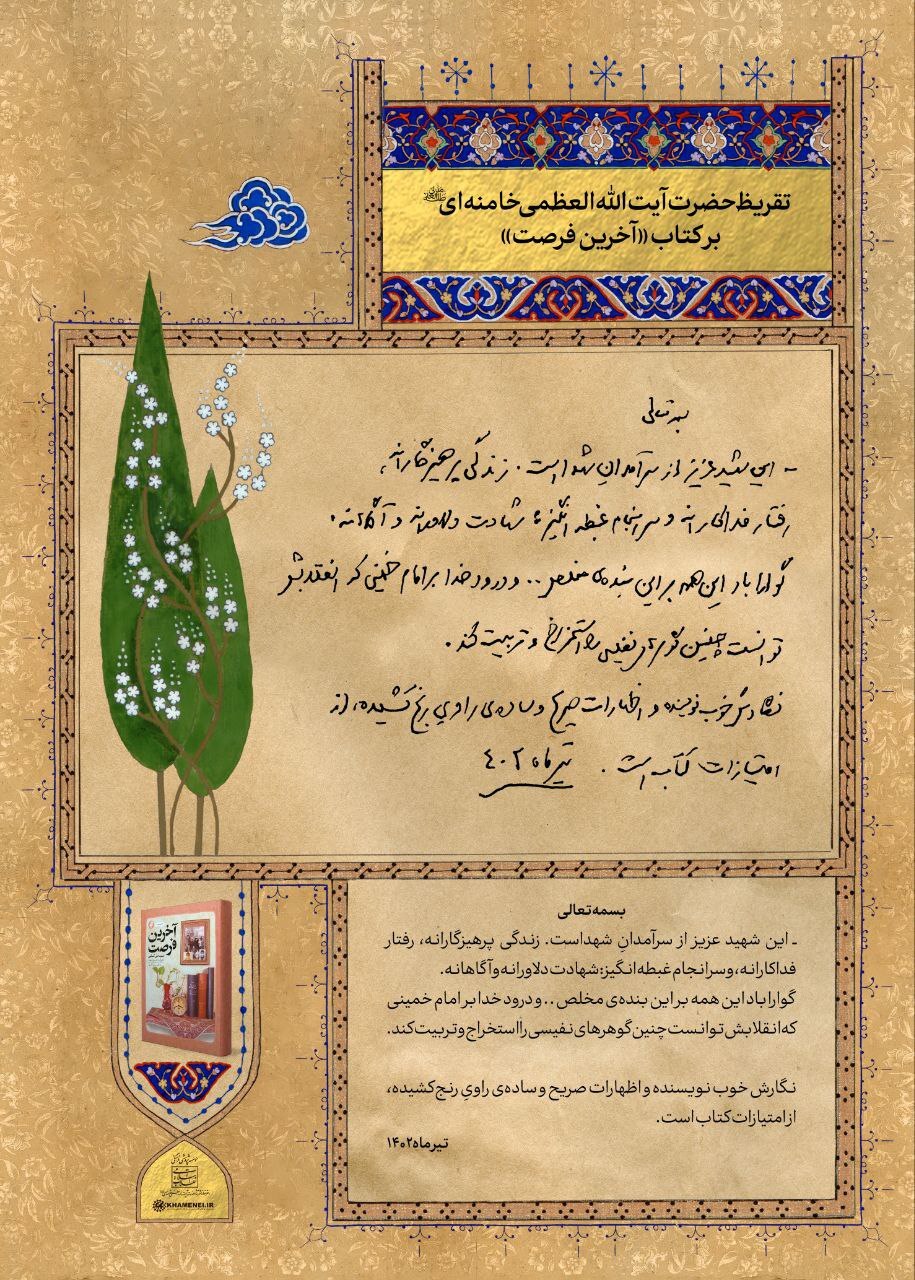 تقریظ حضرت آیت الله العظمی خامنه ای
بر کتاب «آخرین فرصت»
بسمه تعالی
- این شهید عزیز از سرآمدان شهدا است. زندگی پرهیزگارانه،
رفتار فداکارانه و سرانجام غبطه انگیز؛ شهادت دلاورانه و آگاهانه.
گوارا باد این همه بر این بنده‌ی مخلص .. و درود خدا بر امام خمینی که انقلابش
توانست چنین گوهرهای نفیسی را استخراج و تربیت کند.
نگارش خوب نویسنده و اظهارات صریح و ساده‌ی راوی رنج کشیده، از
امتیازات کتاب است. تیرماه ۴۰۲
بسمه تعالی
ـ این شهید عزیز از سرآمدانِ شهداست. زندگی پرهیزگارانه، رفتار
فداکارانه، و سرانجام غبطه انگیز: شهادت دلاورانه و آگاهانه.
گوارا باد این همه بر این بنده‌ی مخلص .. و درود خدا بر امام خمینی
که انقلابش توانست چنین گوهرهای نفیسی را استخراج و تربیت کند.
نگارش خوب نویسنده و اظهارات صریح و ساده‌ی راویِ رنج کشیده،
از امتیازات کتاب است.
تیرماه ۱۴۰۲
آخرین
فرصت
KHAMENEI.IR